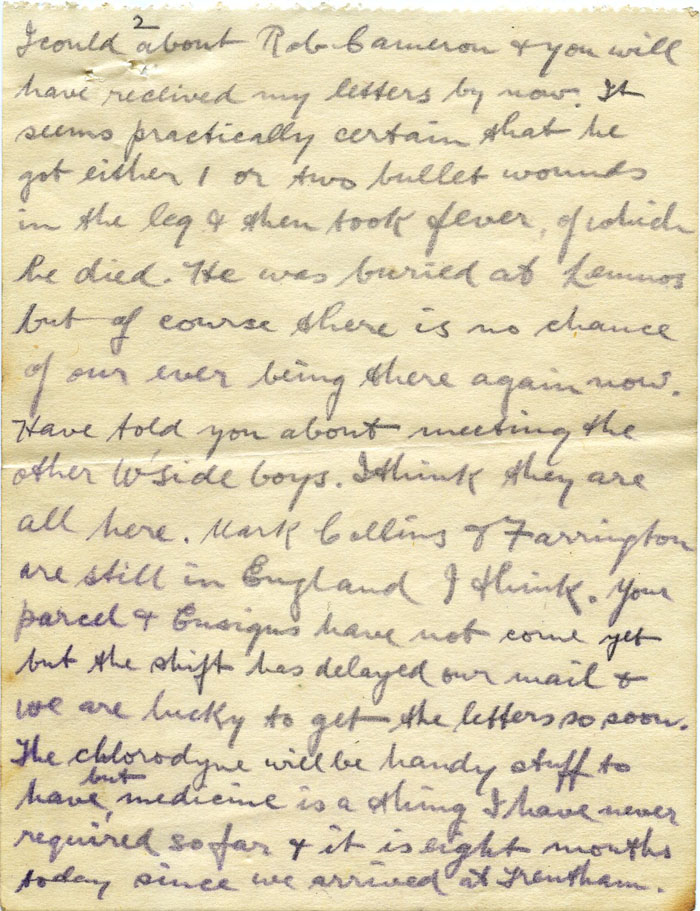 2
I could about Rob Cameron & you will
have received my letters by now. It
seems practically certain that he
got either 1 or two bullet wounds
in the leg & then took fever, of which
he died. He was buried at Lemnos
but of course there is no chance
of our ever being there again now.
Have told you about meeting the
other W'side boys. I think they are
all here. Mark Collins & Farrington
are still in England I think. Your
parcel & Ensigns have not come yet
but the shift has delayed our mail &
we are lucky to get the letters so soon.
The chlorodyne will be handy stuff to
have, but medicine is a thing I have never
required so far & it is eight months
today since we arrived at Trentham.